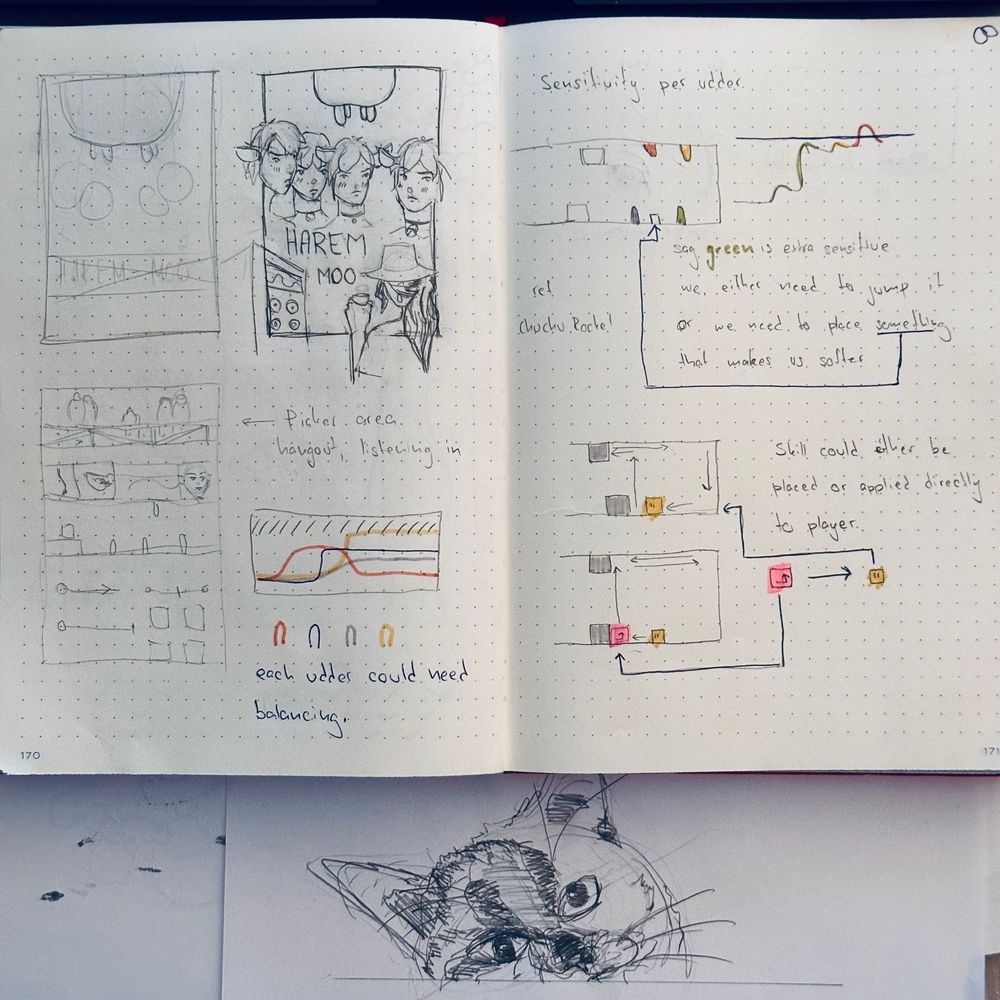 HAREM
MOO
← Picker area.
hangout, listening in
each udder could need
balancing.
170
Sensitivity per udder.
say green is extra sensitive
we either need to jump it
or we need to place something
that makes us softer
ref
ChuChu Rocket
Skill could either be
placed or applied directly
to player.
171